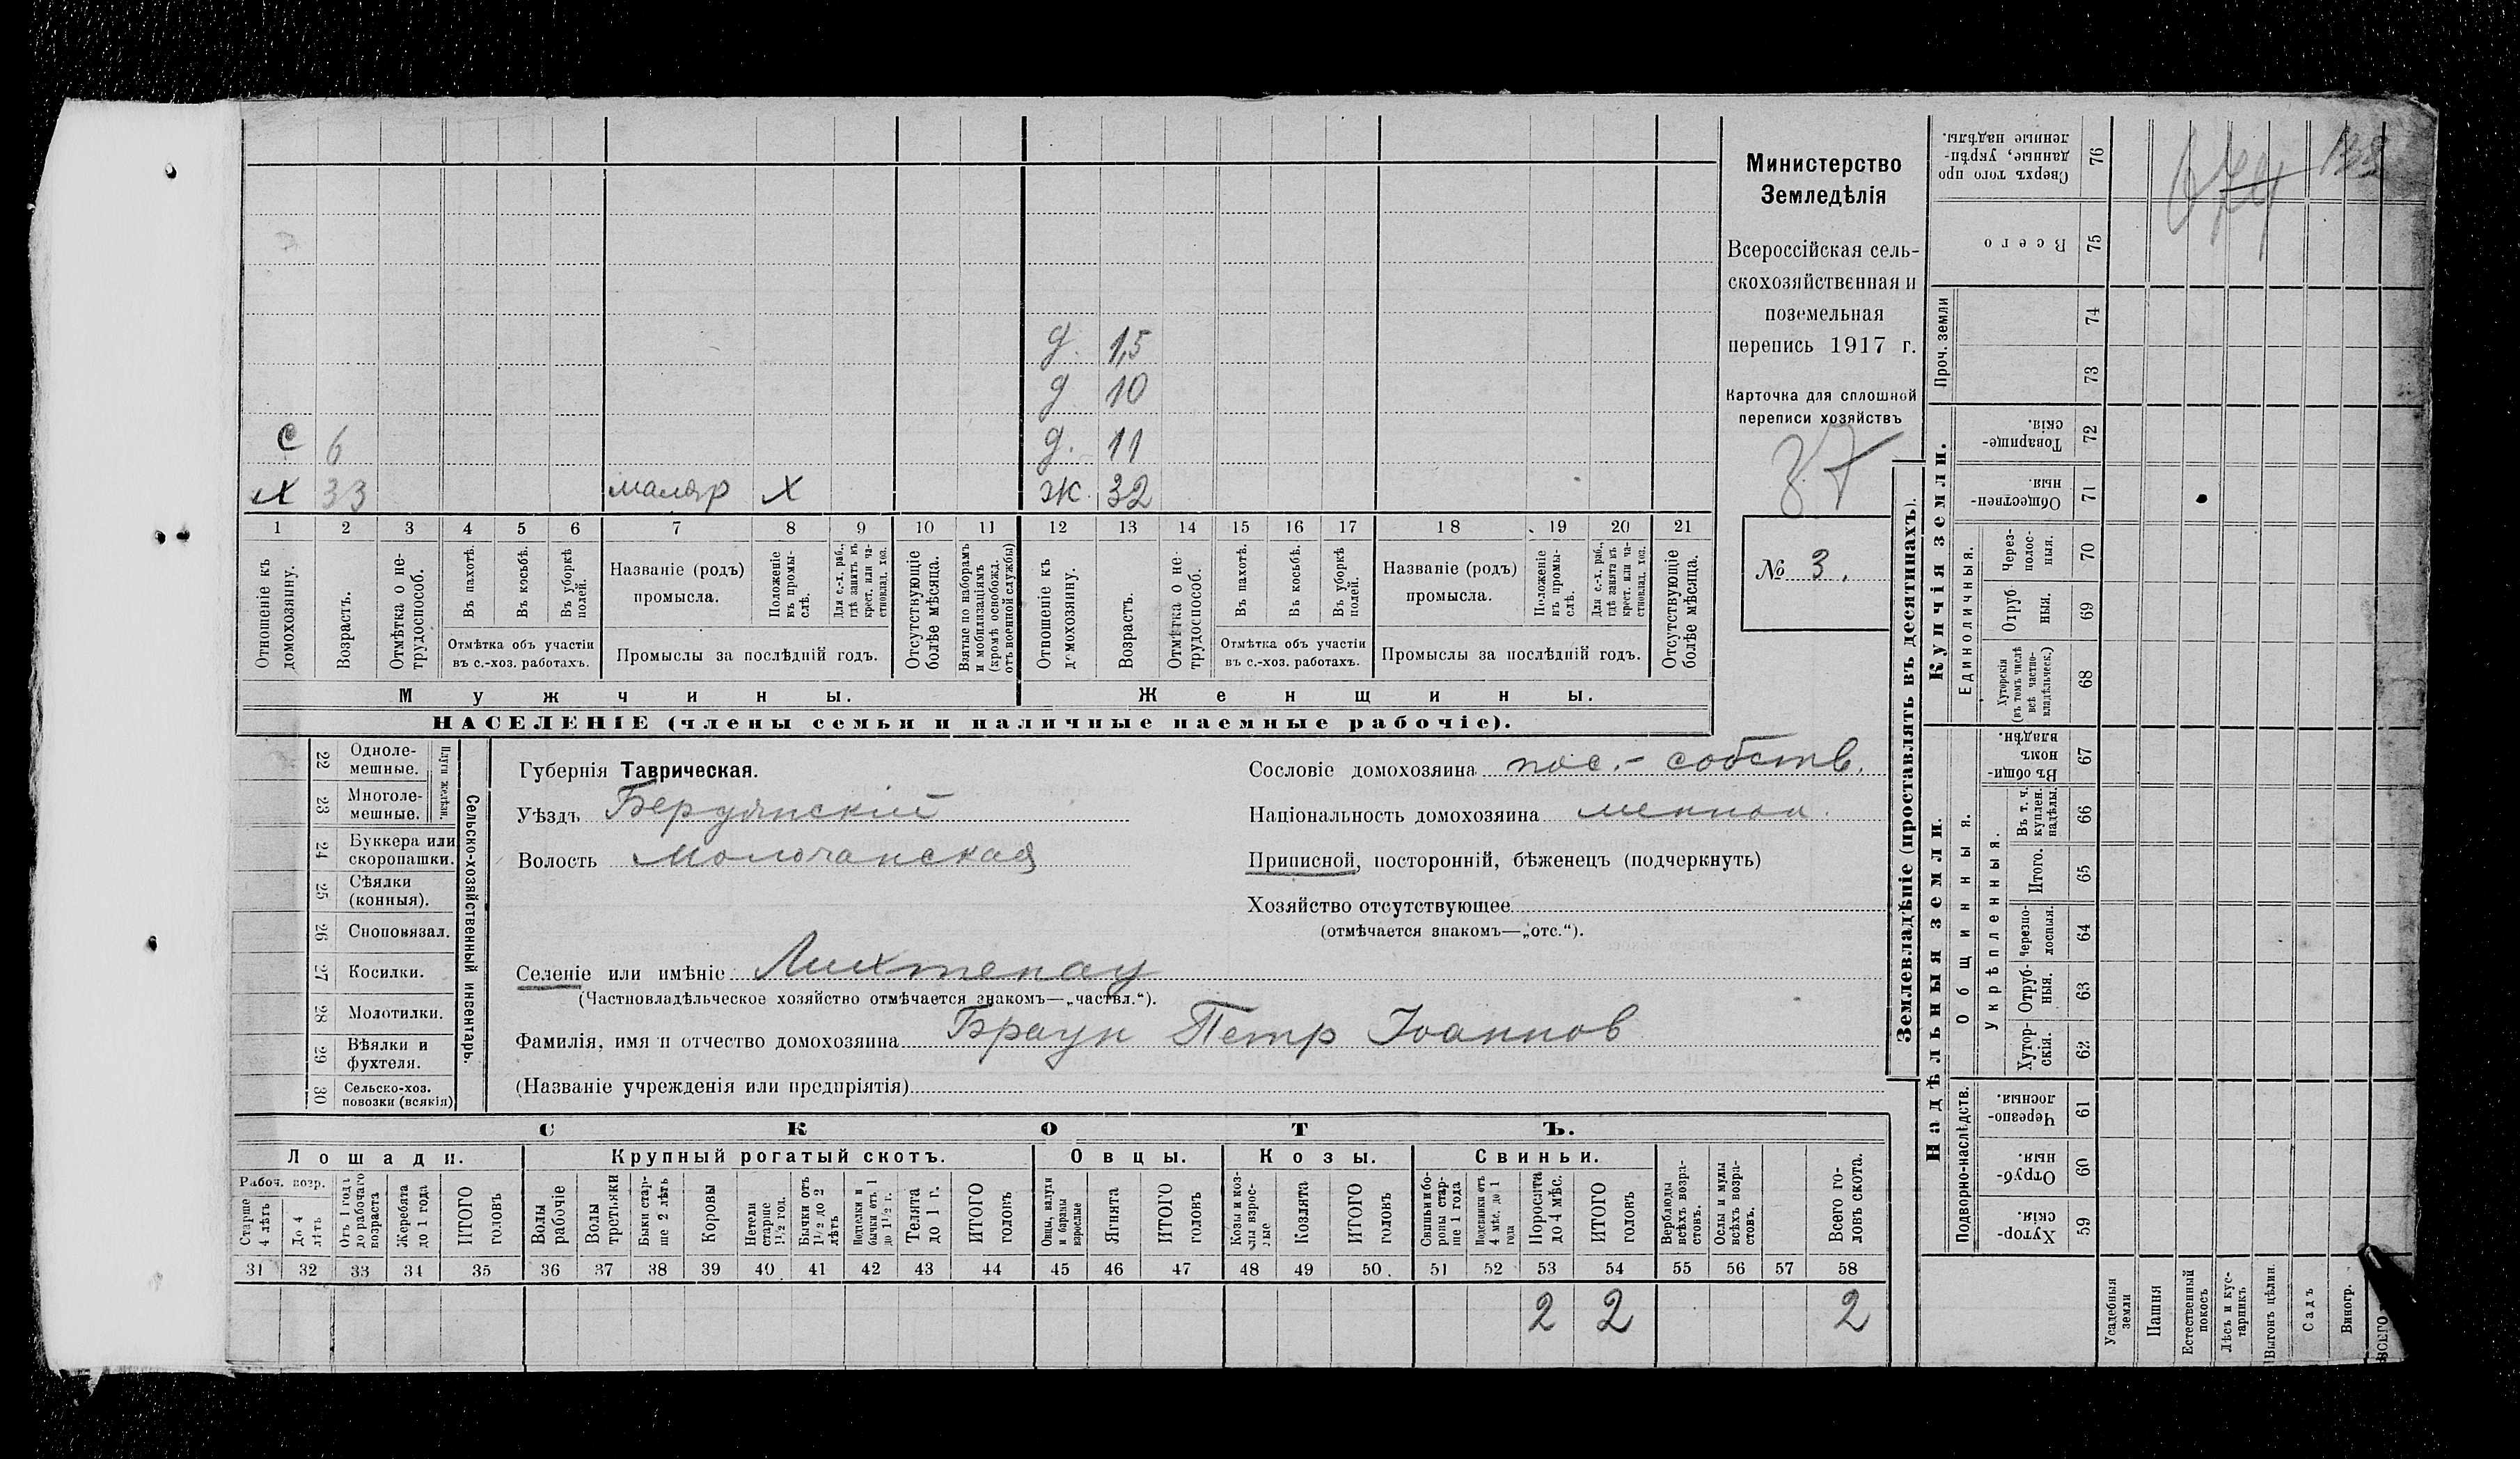 Министерство
Земледѣлія
Всероссійская сель-
скохозяйственная и
поземельная
перепись 1917 г.
Карточка для сплошной
переписи хозяйствъ
37
№ 3.
674 132
д. 1,5
д 10
с 6 д. 11
х 33 маляр х ж. 32
1 2 3 4 5 6 7 8 9 10 11 12 13 14 15 16 17 18 19 20 21
Отношеніе къ домохозяину.
Возрастъ.
Отмѣтка о не-трудоспособ.
Въ пахотѣ.
Въ косьбѣ.
Въ уборкѣ полей.
Отмѣтка объ участіи
въ с.-хоз. работахъ.
Названіе (родъ)
промысла.
Положеніе въ промы-слѣ.
Для с.-х. раб., гдѣ занятъ въ крест. или ча-стновлад. хоз.
Промыслы за послѣдній годъ.
Отсутствующіе болѣе мѣсяца.
Взятые по наборамъ и мобилизаціямъ (кромѣ освобожд. отъ военной службы)
Отношеніе къ домохозяину.
Возрастъ.
Отмѣтка о не-трудоспособ.
Въ пахотѣ.
Въ косьбѣ.
Въ уборкѣ полей.
Отмѣтка объ участіи
въ с.-хоз. работахъ.
Названіе (родъ)
промысла.
Положеніе въ промы-слѣ.
Для с.-х. раб., гдѣ занята въ крест. или ча-стновлад. хоз.
Промыслы за послѣдній годъ.
Отсутствующіе болѣе мѣсяца.
Мужчины. Женщины.
НАСЕЛЕНІЕ (члены семьи и наличные наемные рабочіе).
Сельско-хозяйственный инвентарь.
Плуги желѣзн.
22 Одноле-мешные.
23 Многоле-мешные.
24 Буккера или скоропашки.
25 Сѣялки (конныя).
26 Сноповязал.
27 Косилки.
28 Молотилки.
29 Вѣялки и фухтеля.
30 Сельско-хоз. повозки (всякія)
Губернія Таврическая.
Уѣздъ Бердянскій
Волость Молочанская
Селеніе или имѣніе Лихтенау
(Частновладѣльческое хозяйство отмѣчается знакомъ—„частвл.“).
Фамилія, имя и отчество домохозяина Браун Петр Іоаннов
(Названіе учрежденія или предпріятія)
Сословіе домохозяина пос.- собств.
Національность домохозяина меннон.
Приписной, посторонній, бѣженецъ (подчеркнуть)
Хозяйство отсутствующее
(отмѣчается знакомъ—„отс.“).
СКОТЪ.
Лошади. Крупный рогатый скотъ. Овцы. Козы. Свиньи.
Рабоч. возр.
Старше 4 лѣтъ
До 4 лѣтъ
Отъ 1 года до рабочаго возраста
Жеребята до 1 года
ИТОГО головъ
Волы рабочіе
Волы третьяки
Быки стар-ше 2 лѣтъ
Коровы
Нетели старше 1½ год.
Бычки отъ 1½ до 2 лѣтъ
Подтелки и бычки отъ 1 до 1½ г.
Телята до 1 г.
ИТОГО головъ
Овцы, валухи и бараны взрослые
Ягнята
ИТОГО головъ
Козы и коз-лы взрос-лые
Козлята
ИТОГО головъ
Свиньи и бо-ровы стар-ше 1 года
Подсвинки отъ 4 мѣс. до 1 года
Поросята до 4 мѣс.
ИТОГО головъ
Верблюды всѣхъ возра-стовъ.
Ослы и мулы всѣхъ возра-стовъ.
Всего го-ловъ скота.
31 32 33 34 35 36 37 38 39 40 41 42 43 44 45 46 47 48 49 50. 51 52 53 54 55 56 57 58
2 2 2
Землевладѣніе (проставлять въ десятинахъ).
Купчія земли.
Надѣльныя земли.
Сверхъ того про-данные, укрѣп-ленные надѣлы. 76
Всего 75
Проч. земли
74
73
Товарище-скія. 72
Обществен-ныя. 71
Единоличныя.
Через-полос-ныя. 70
Отруб-ныя. 69
Хуторскія (въ томъ числѣ всѣ частно-владѣльческ.) 68
Общинныя.
Въ общи-номъ владѣн. 67
Укрѣпленныя.
Въ т. ч. куплен. надѣлы. 66
Итого. 65
Черезпо-лосныя. 64
Отруб-ныя. 63
Хутор-скія. 62
Подворно-наслѣдств.
Черезпо-лосныя. 61
Отруб-ныя. 60
Хутор-скія. 59
Усадебныя земли
Пашня
Естественный покосъ
Лѣсъ и кус-тарникъ
Выгонъ цѣлин.
Садъ
Виногр.
ВСЕГО